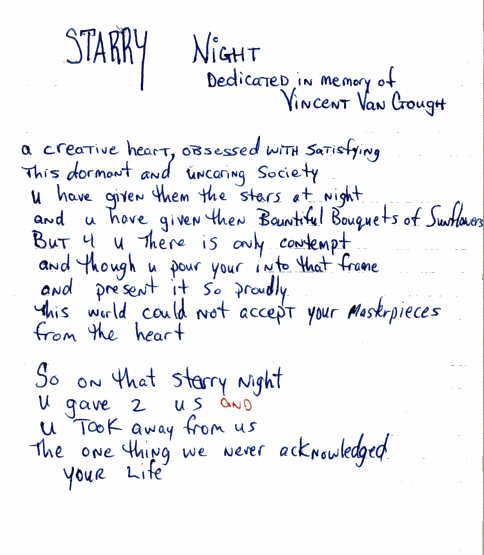 STARRY NIGHT
Dedicated in memory of
Vincent Van Gough
a creative heart, obsessed with satisfying
This dormant and uncaring society
u have given them the stars at night
and u have given then Bountiful Bouquets of Sunflowers
But 4 u There is only contempt
and though u pour your into that frame
and present it so proudly
this world could not accept your Masterpieces
from the heart
So on that starry night
u gave 2 us and
u took away from us
The one thing we never acknowledged
your Life